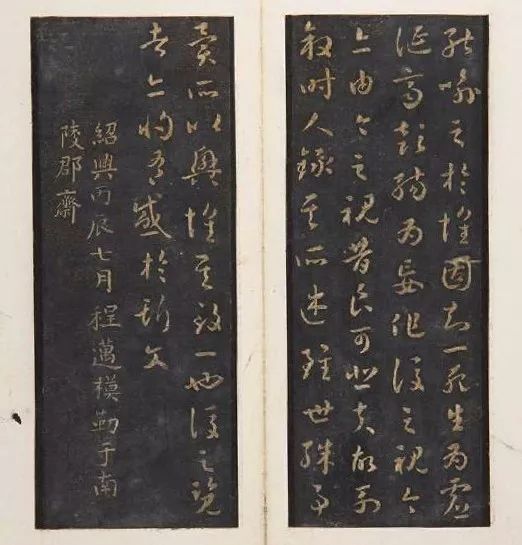 能喻之於懷固知一死生為虛
誕齊彭殤為妄作後之視今
亦由今之視昔良可悲夫故列
叙時人錄其所述雖世殊事
異所以興懷其致一也後之覽
者亦將有感於斯文
紹興丙辰七月程邁模勒于南
陵郡齋